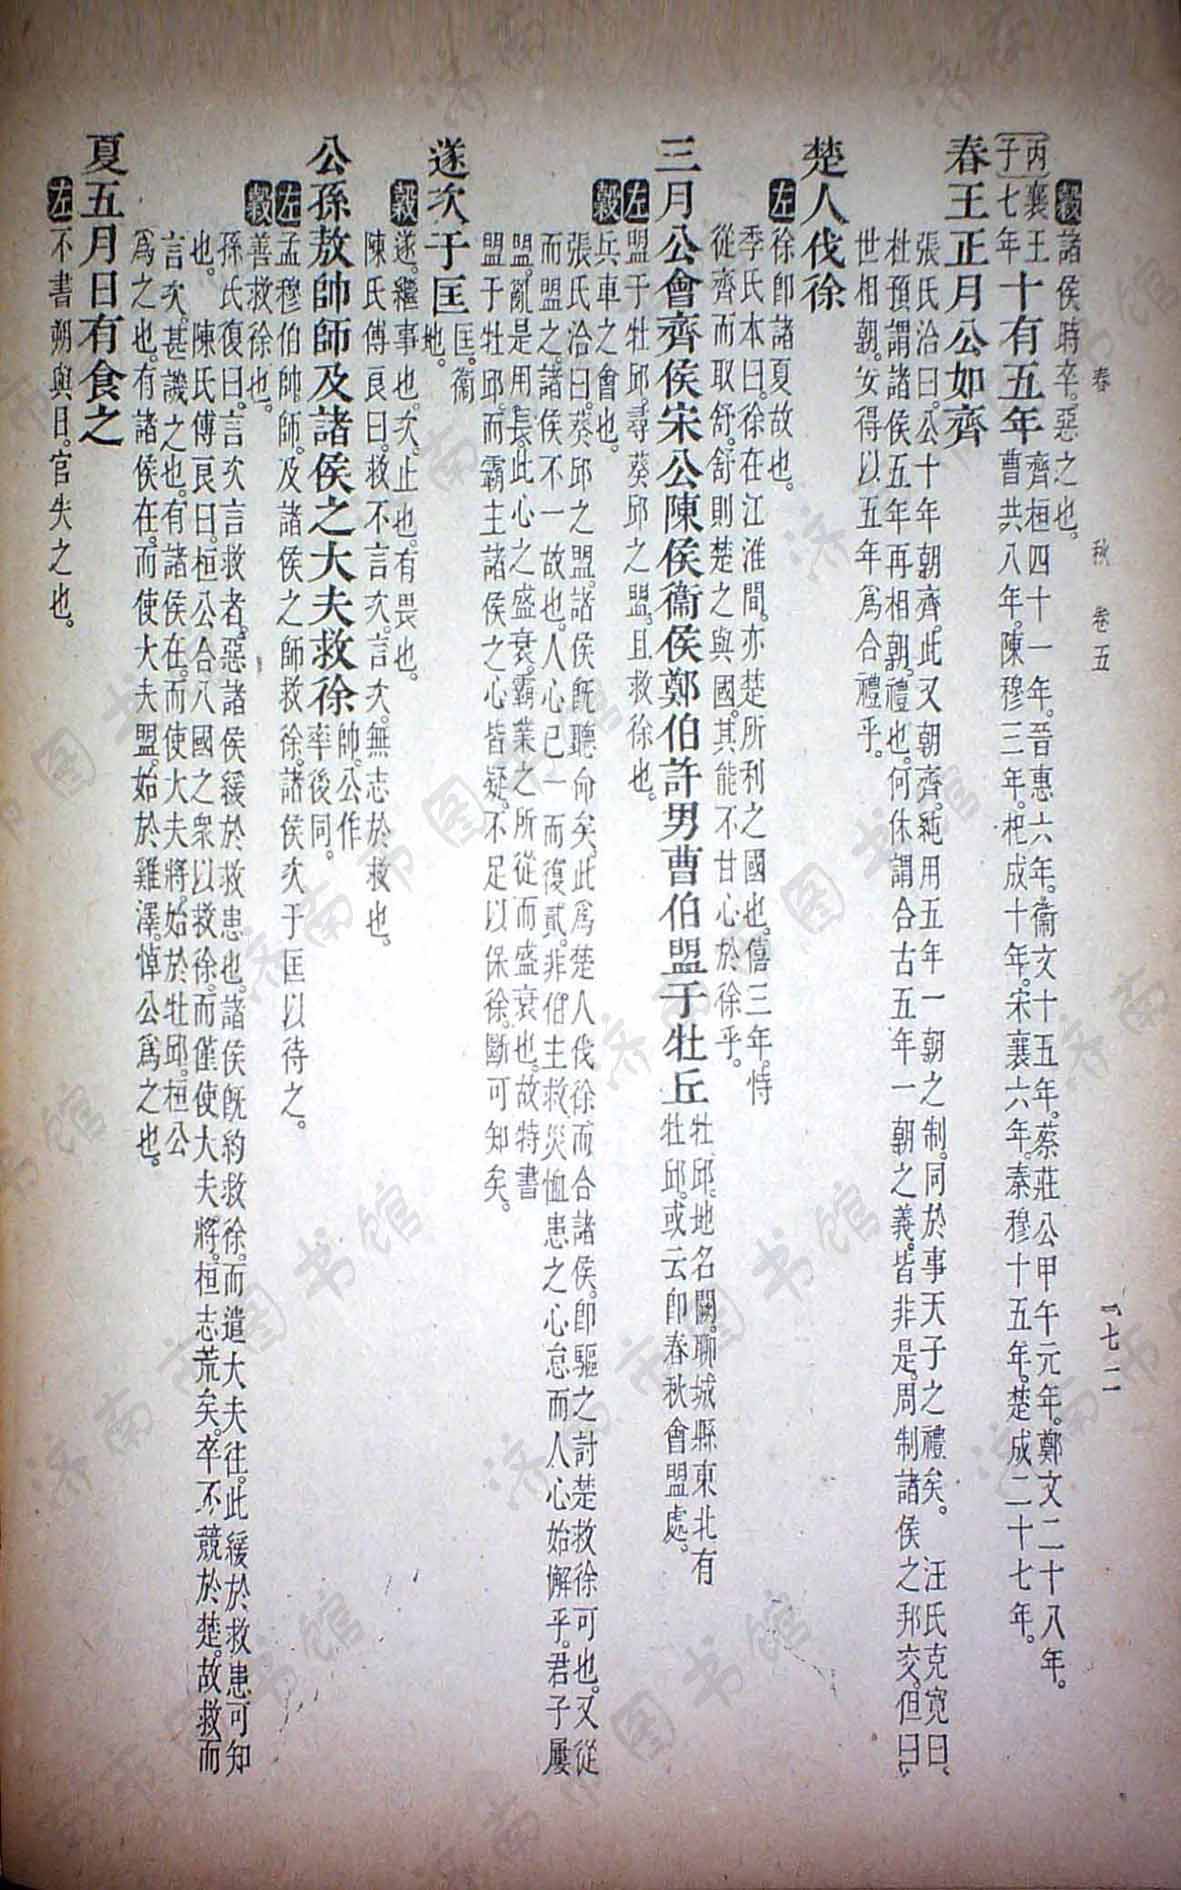 春 秋 卷五 一七二
穀 諸侯時卒。惡之也。
丙子 襄王七年 十有五年 齊桓四十一年。晉惠六年。衞文十五年。蔡莊公甲午元年。鄭文二十八年。
曹共八年。陳穆三年。杞成十年。宋襄六年。秦穆十五年。楚成二十七年。
春王正月公如齊
張氏洽曰。公十年朝齊。此又朝齊。純用五年一朝之制。同於事天子之禮矣。 汪氏克寬曰、
杜預謂諸侯五年再相朝。禮也。何休謂合古五年一朝之義。皆非是。周制諸侯之邦交。但曰、
世相朝。安得以五年爲合禮乎。
楚人伐徐
左 徐卽諸夏故也。
季氏本曰。徐在江淮間。亦楚所利之國也。僖三年。恃
從齊而取舒。舒則楚之與國。其能不甘心於徐乎。
三月公會齊侯宋公陳侯衞侯鄭伯許男曹伯盟于牡丘 牡邱。地名闕。聊城縣東北有
牡邱。或云卽春秋會盟處。
左 盟于牡邱。尋葵邱之盟。且救徐也。
穀 兵車之會也。
張氏洽曰。葵邱之盟。諸侯旣聽命矣。此爲楚人伐徐而合諸侯。卽驅之討楚救徐可也。又從
而盟之。諸侯不一故也。人心已一而復貳。非伯主救災恤患之心怠而人心始懈乎。君子屢
盟。亂是用長。此心之盛衰。霸業之所從而盛衰也。故特書
盟于牡邱。而霸主諸侯之心皆疑。不足以保徐。斷可知矣。
遂次于匡 匡。衞
地。
穀 遂。繼事也。次。止也。有畏也。
陳氏傅良曰。救不言次。言次。無志於救也。
公孫敖帥師及諸侯之大夫救徐 帥。公作
率。後同。
左 孟穆伯帥師。及諸侯之師救徐。諸侯次于匡以待之。
穀 善救徐也。
孫氏復曰。言次言救者。惡諸侯緩於救患也。諸侯旣約救徐。而遣大夫往。此緩於救患可知
也。 陳氏傅良曰。桓公合八國之衆以救徐。而僅使大夫將。桓志荒矣。卒不競於楚。故救而
言次。甚譏之也。有諸侯在。而使大夫將。始於牡邱。桓公
爲之也。有諸侯在。而使大夫盟。始於雞澤。悼公爲之也。
夏五月日有食之
左 不書朔與日。官失之也。